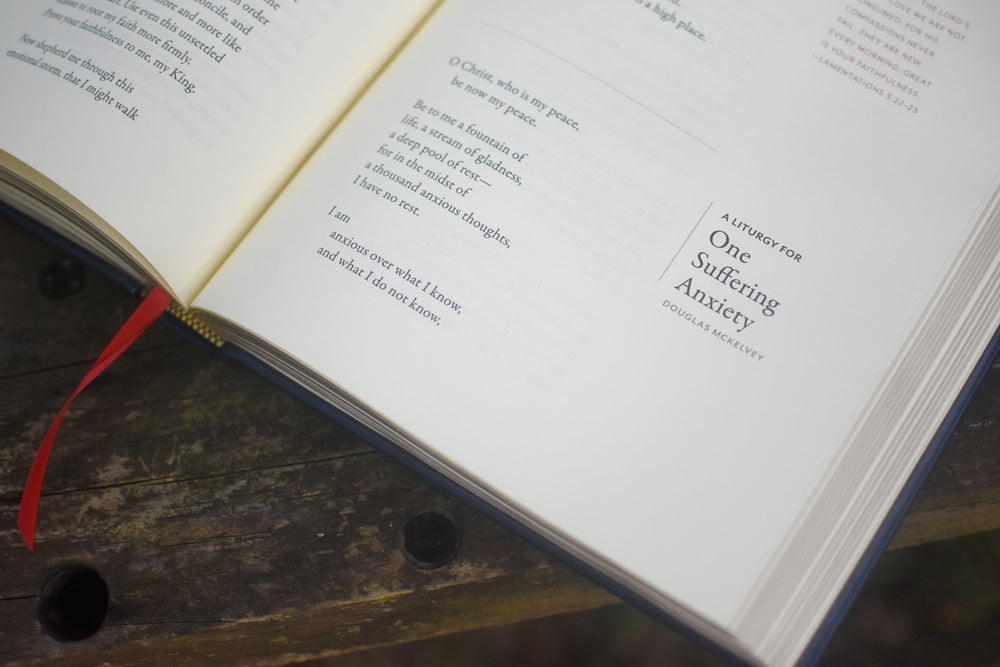 order
concile, and
more and more like
art. Use even this unsettled
season to root my faith more firmly.
Prove your faithfulness to me, my King.
Now shepherd me through this
emotional storm, that I might walk
a high place.
O Christ, who is my peace,
be now my peace.
Be to me a fountain of
life, a stream of gladness,
a deep pool of rest—
for in the midst of
a thousand anxious thoughts,
I have no rest.
I am
anxious over what I know,
and what I do not know,
THE LORD'S
LOVE WE ARE NOT
CONSUMED, FOR HIS
COMPASSIONS NEVER
FAIL. THEY ARE NEW
EVERY MORNING; GREAT
IS YOUR FAITHFULNESS.
—LAMENTATIONS 3:22–23
A LITURGY FOR
One
Suffering
Anxiety
DOUGLAS MCKELVEY